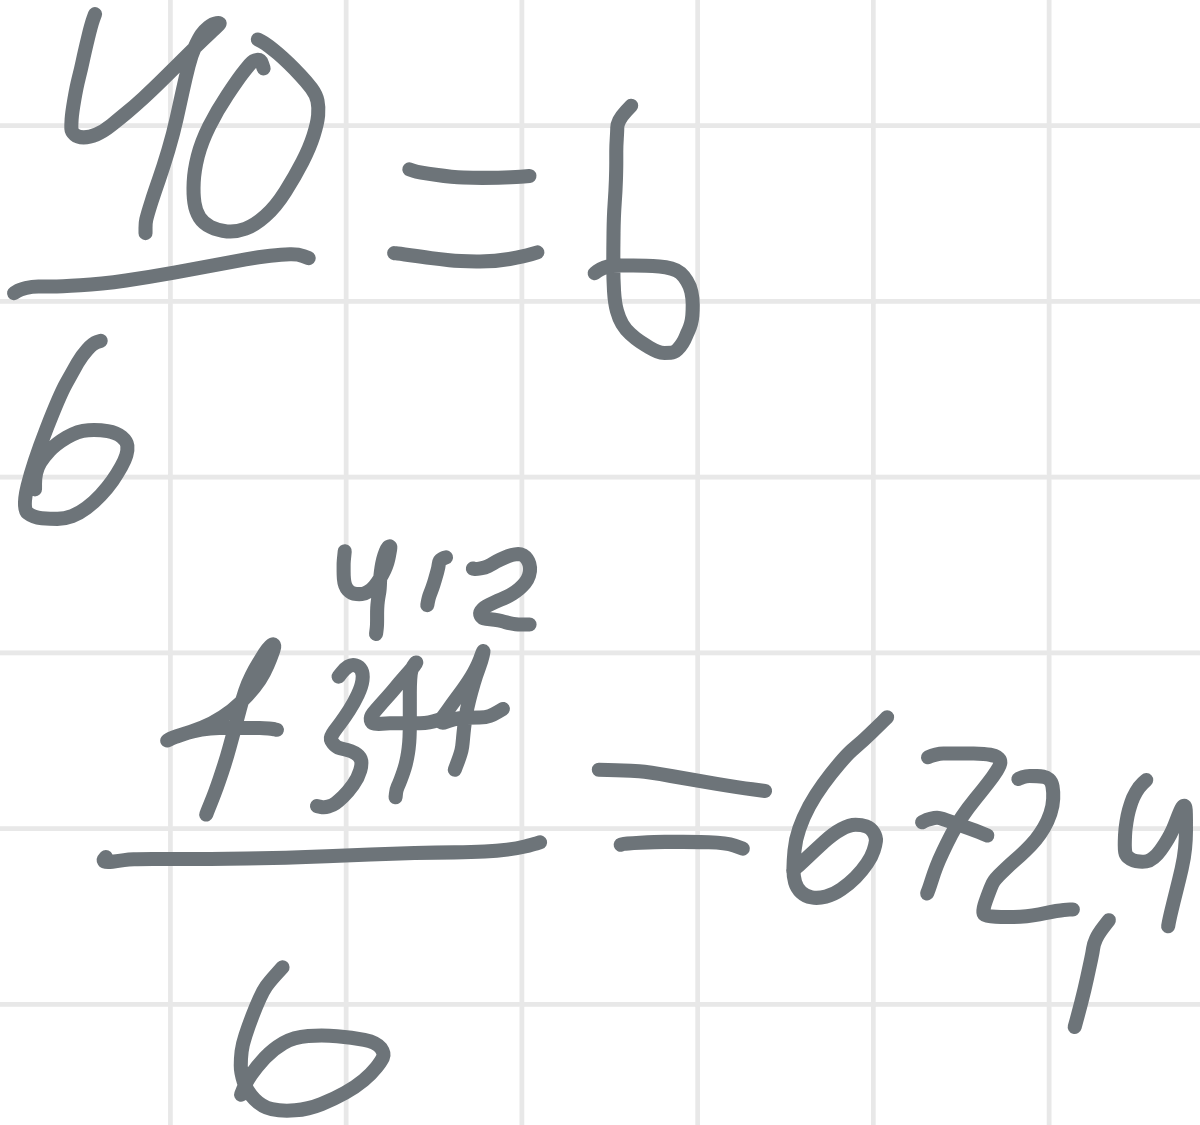 40
= 6
6
412
+ 344
= 672,4
6